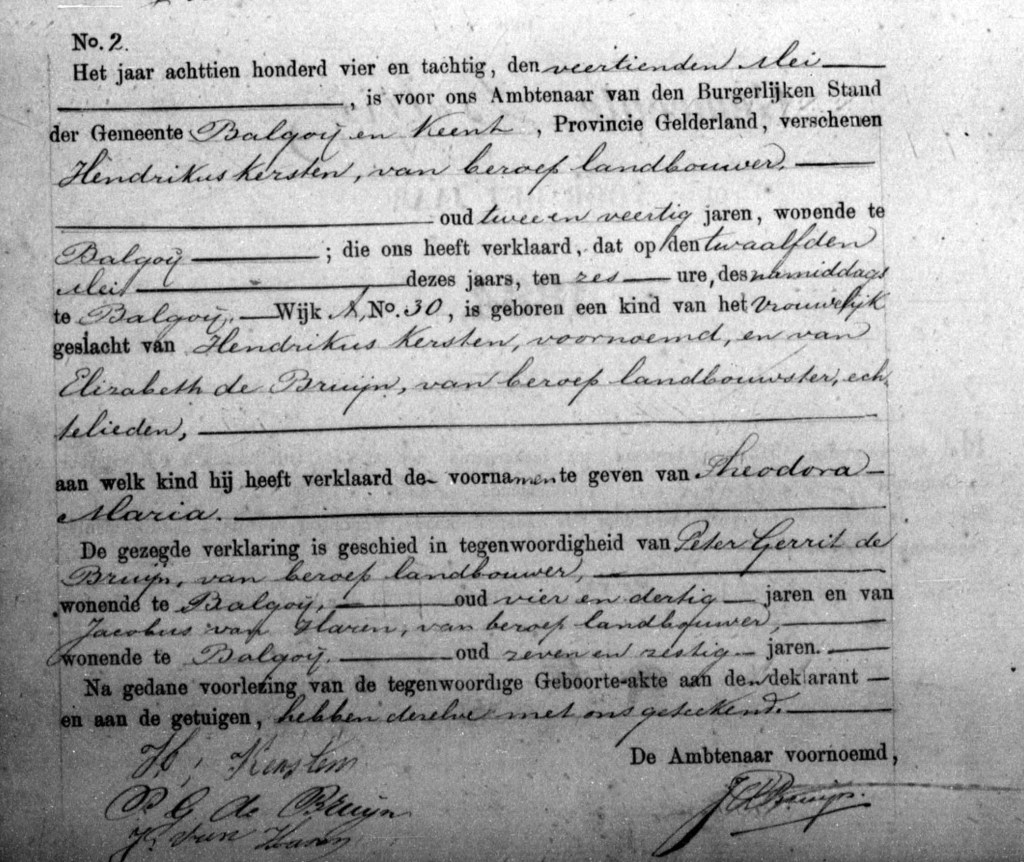 No. 2.
Het jaar achttien honderd vier en tachtig, den veertienden Mei
, is voor ons Ambtenaar van den Burgerlijken Stand
der Gemeente Balgoij en Keent, Provincie Gelderland, verschenen
Hendrikus Kersten, van beroep landbouwer,
oud twee en veertig jaren, wonende te
Balgoij ; die ons heeft verklaard, dat op den twaalfden
Mei dezes jaars, ten zes ure, des namiddags
te Balgoij. Wijk A, No. 30, is geboren een kind van het vrouwelijk
geslacht van Hendrikus Kersten, voornoemd, en van
Elizabeth de Bruijn, van beroep landbouwster, ech,
telieden,
aan welk kind hij heeft verklaard de voornamen te geven van Theodora
Maria.
De gezegde verklaring is geschied in tegenwoordigheid van Peter Gerrit de
Bruijn, van beroep landbouwer,
wonende te Balgoij, oud vier en dertig jaren en van
Jacobus van Haren, van beroep landbouwer,
wonende te Balgoij. oud zeven en zestig jaren.
Na gedane voorlezing van de tegenwoordige Geboorte-akte aan den deklarant
en aan de getuigen, hebben deselve met ons geteekend.
De Ambtenaar voornoemd,
H; Kersten
P G de Bruijn
van Haren
Bruijn.